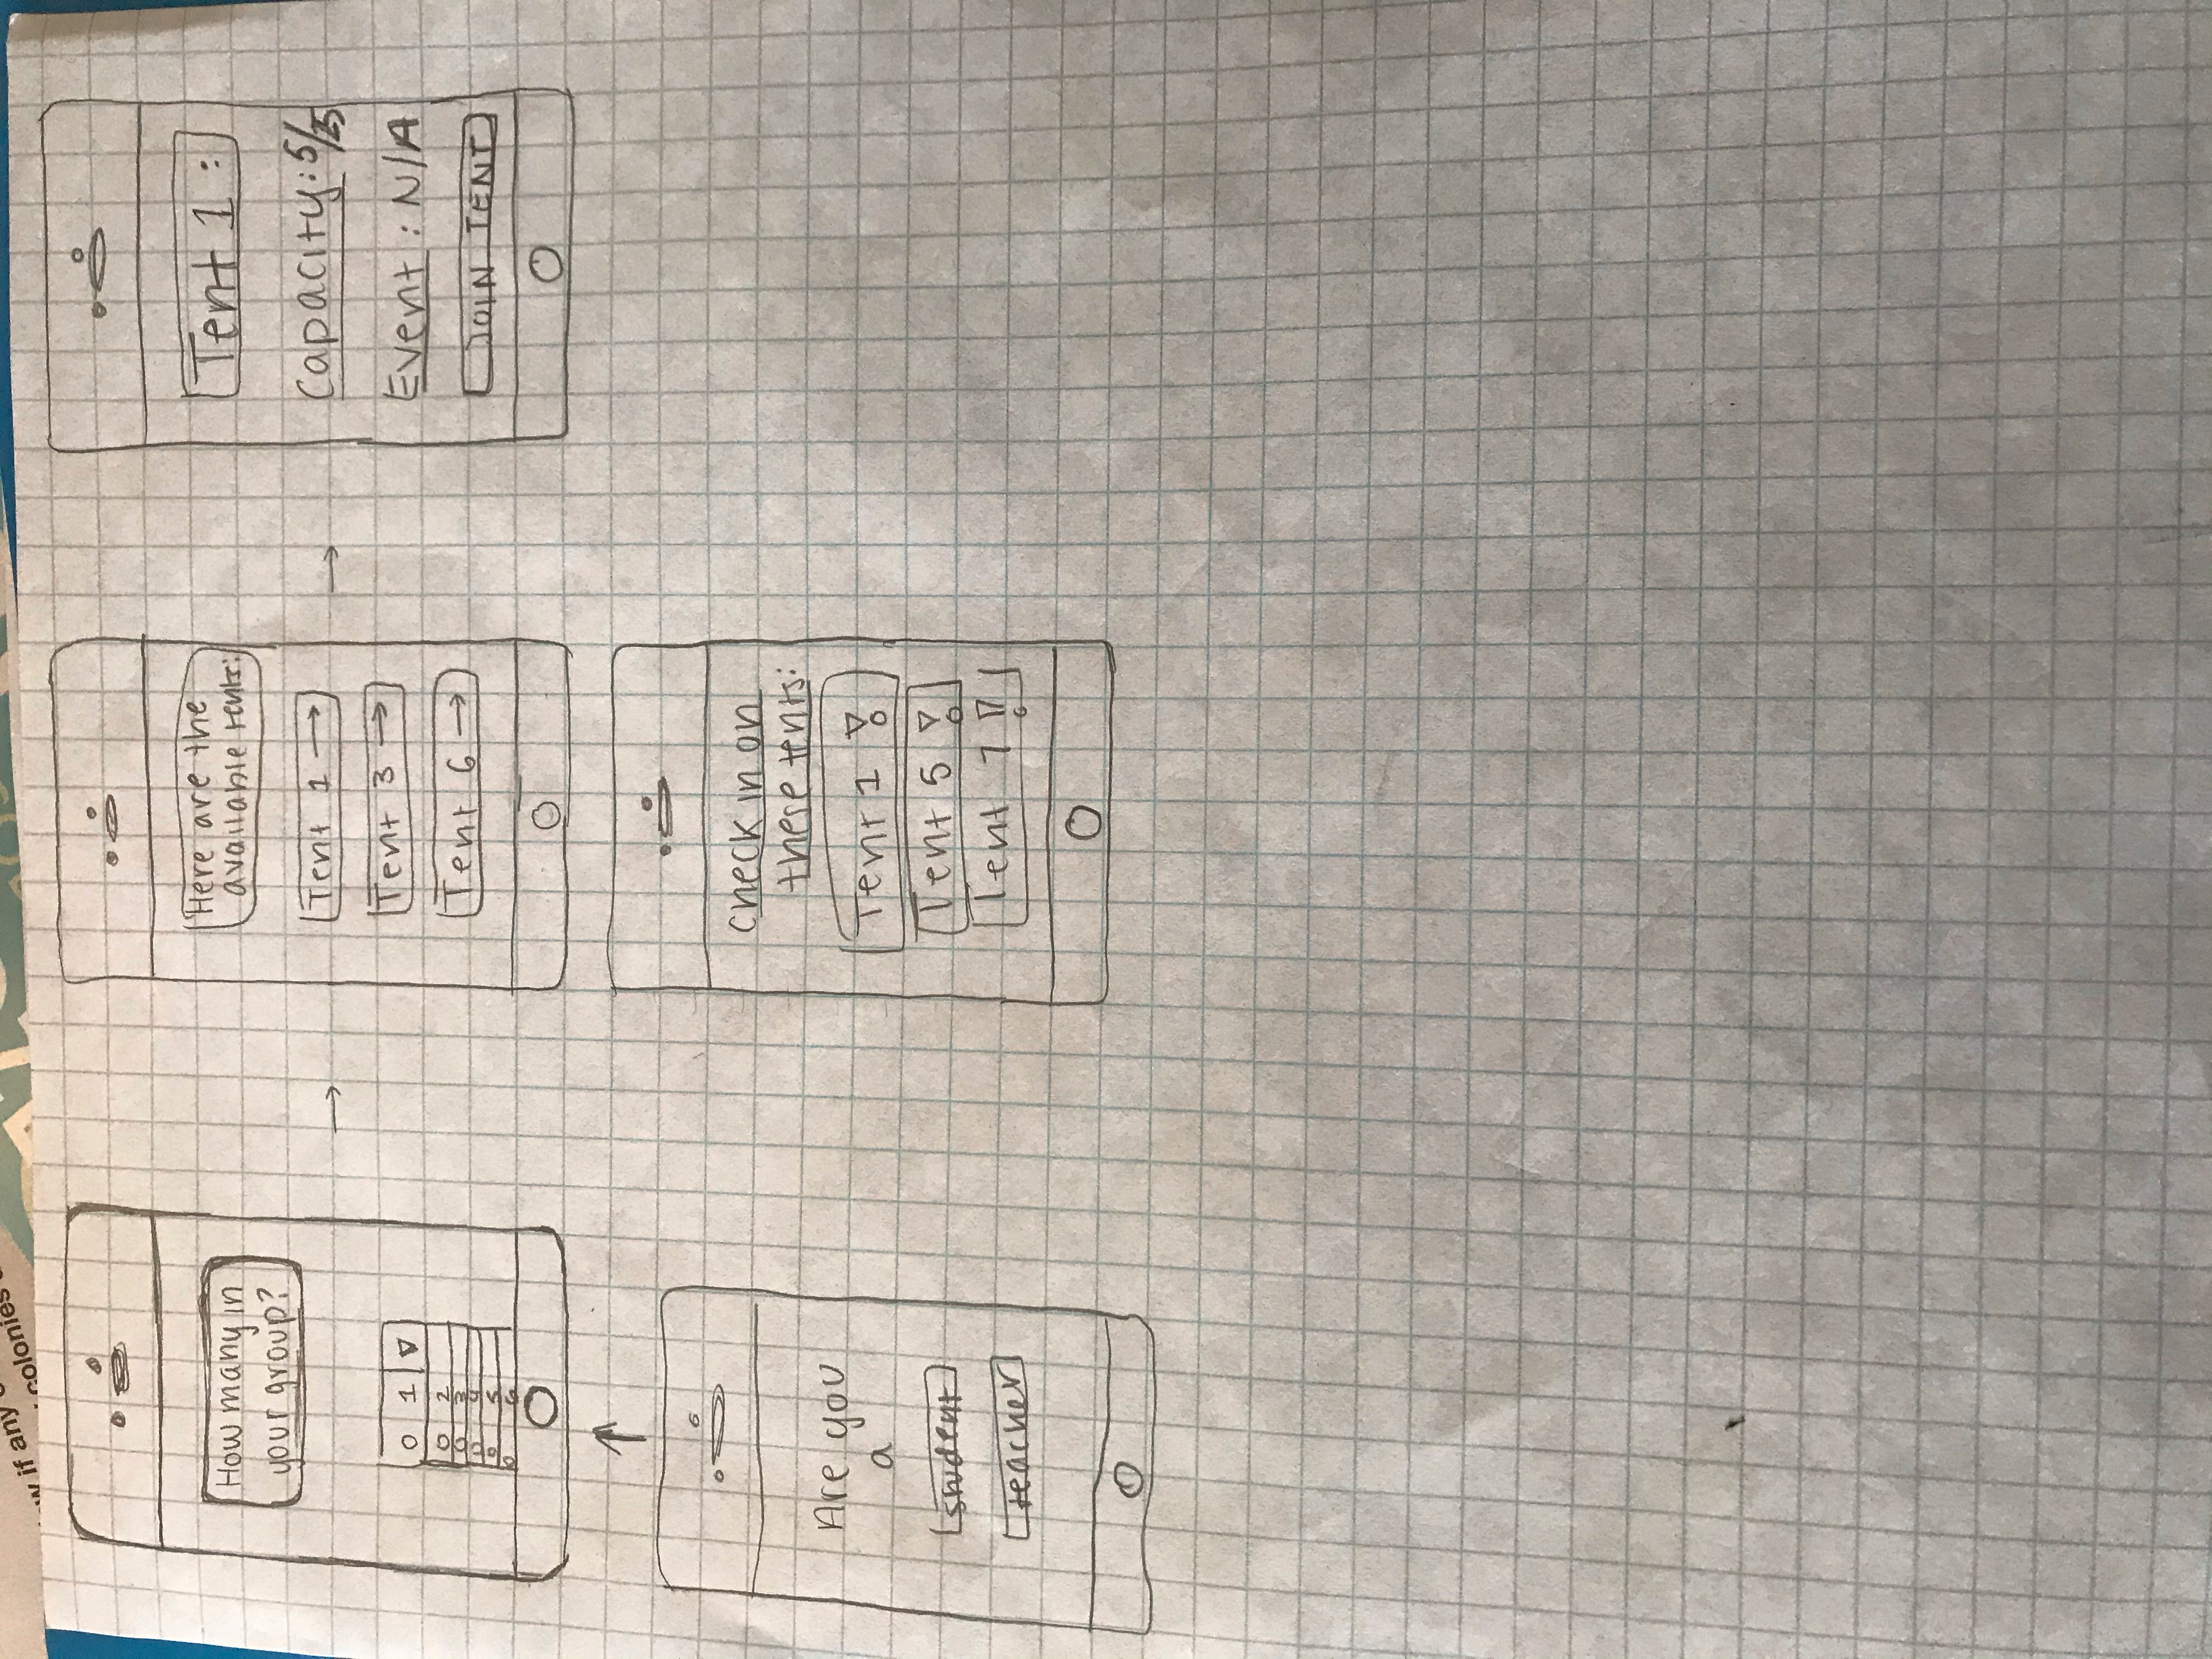 w if any
colonies
How many in
your group?
0 1
0 2
0 3
0 4
0 5
0 6
Here are the
available tents:
Tent 1 →
Tent 3 →
Tent 6 →
Tent 1 :
Capacity: 5/25
Event : N/A
JOIN TENT
Are you
a
student
teacher
check in on
these tents:
Tent 1 !
Tent 5 !
Tent 7 !